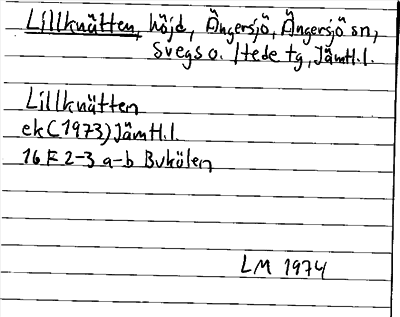 Lillknätten, höjd, Ängersjö, Ängersjö sn,
Svegs o. Hede tg, Jämtl.l.
Lillknätten
ek (1973) Jämtl.l.
16 E 2-3 a-b Bukölen
LM 1974